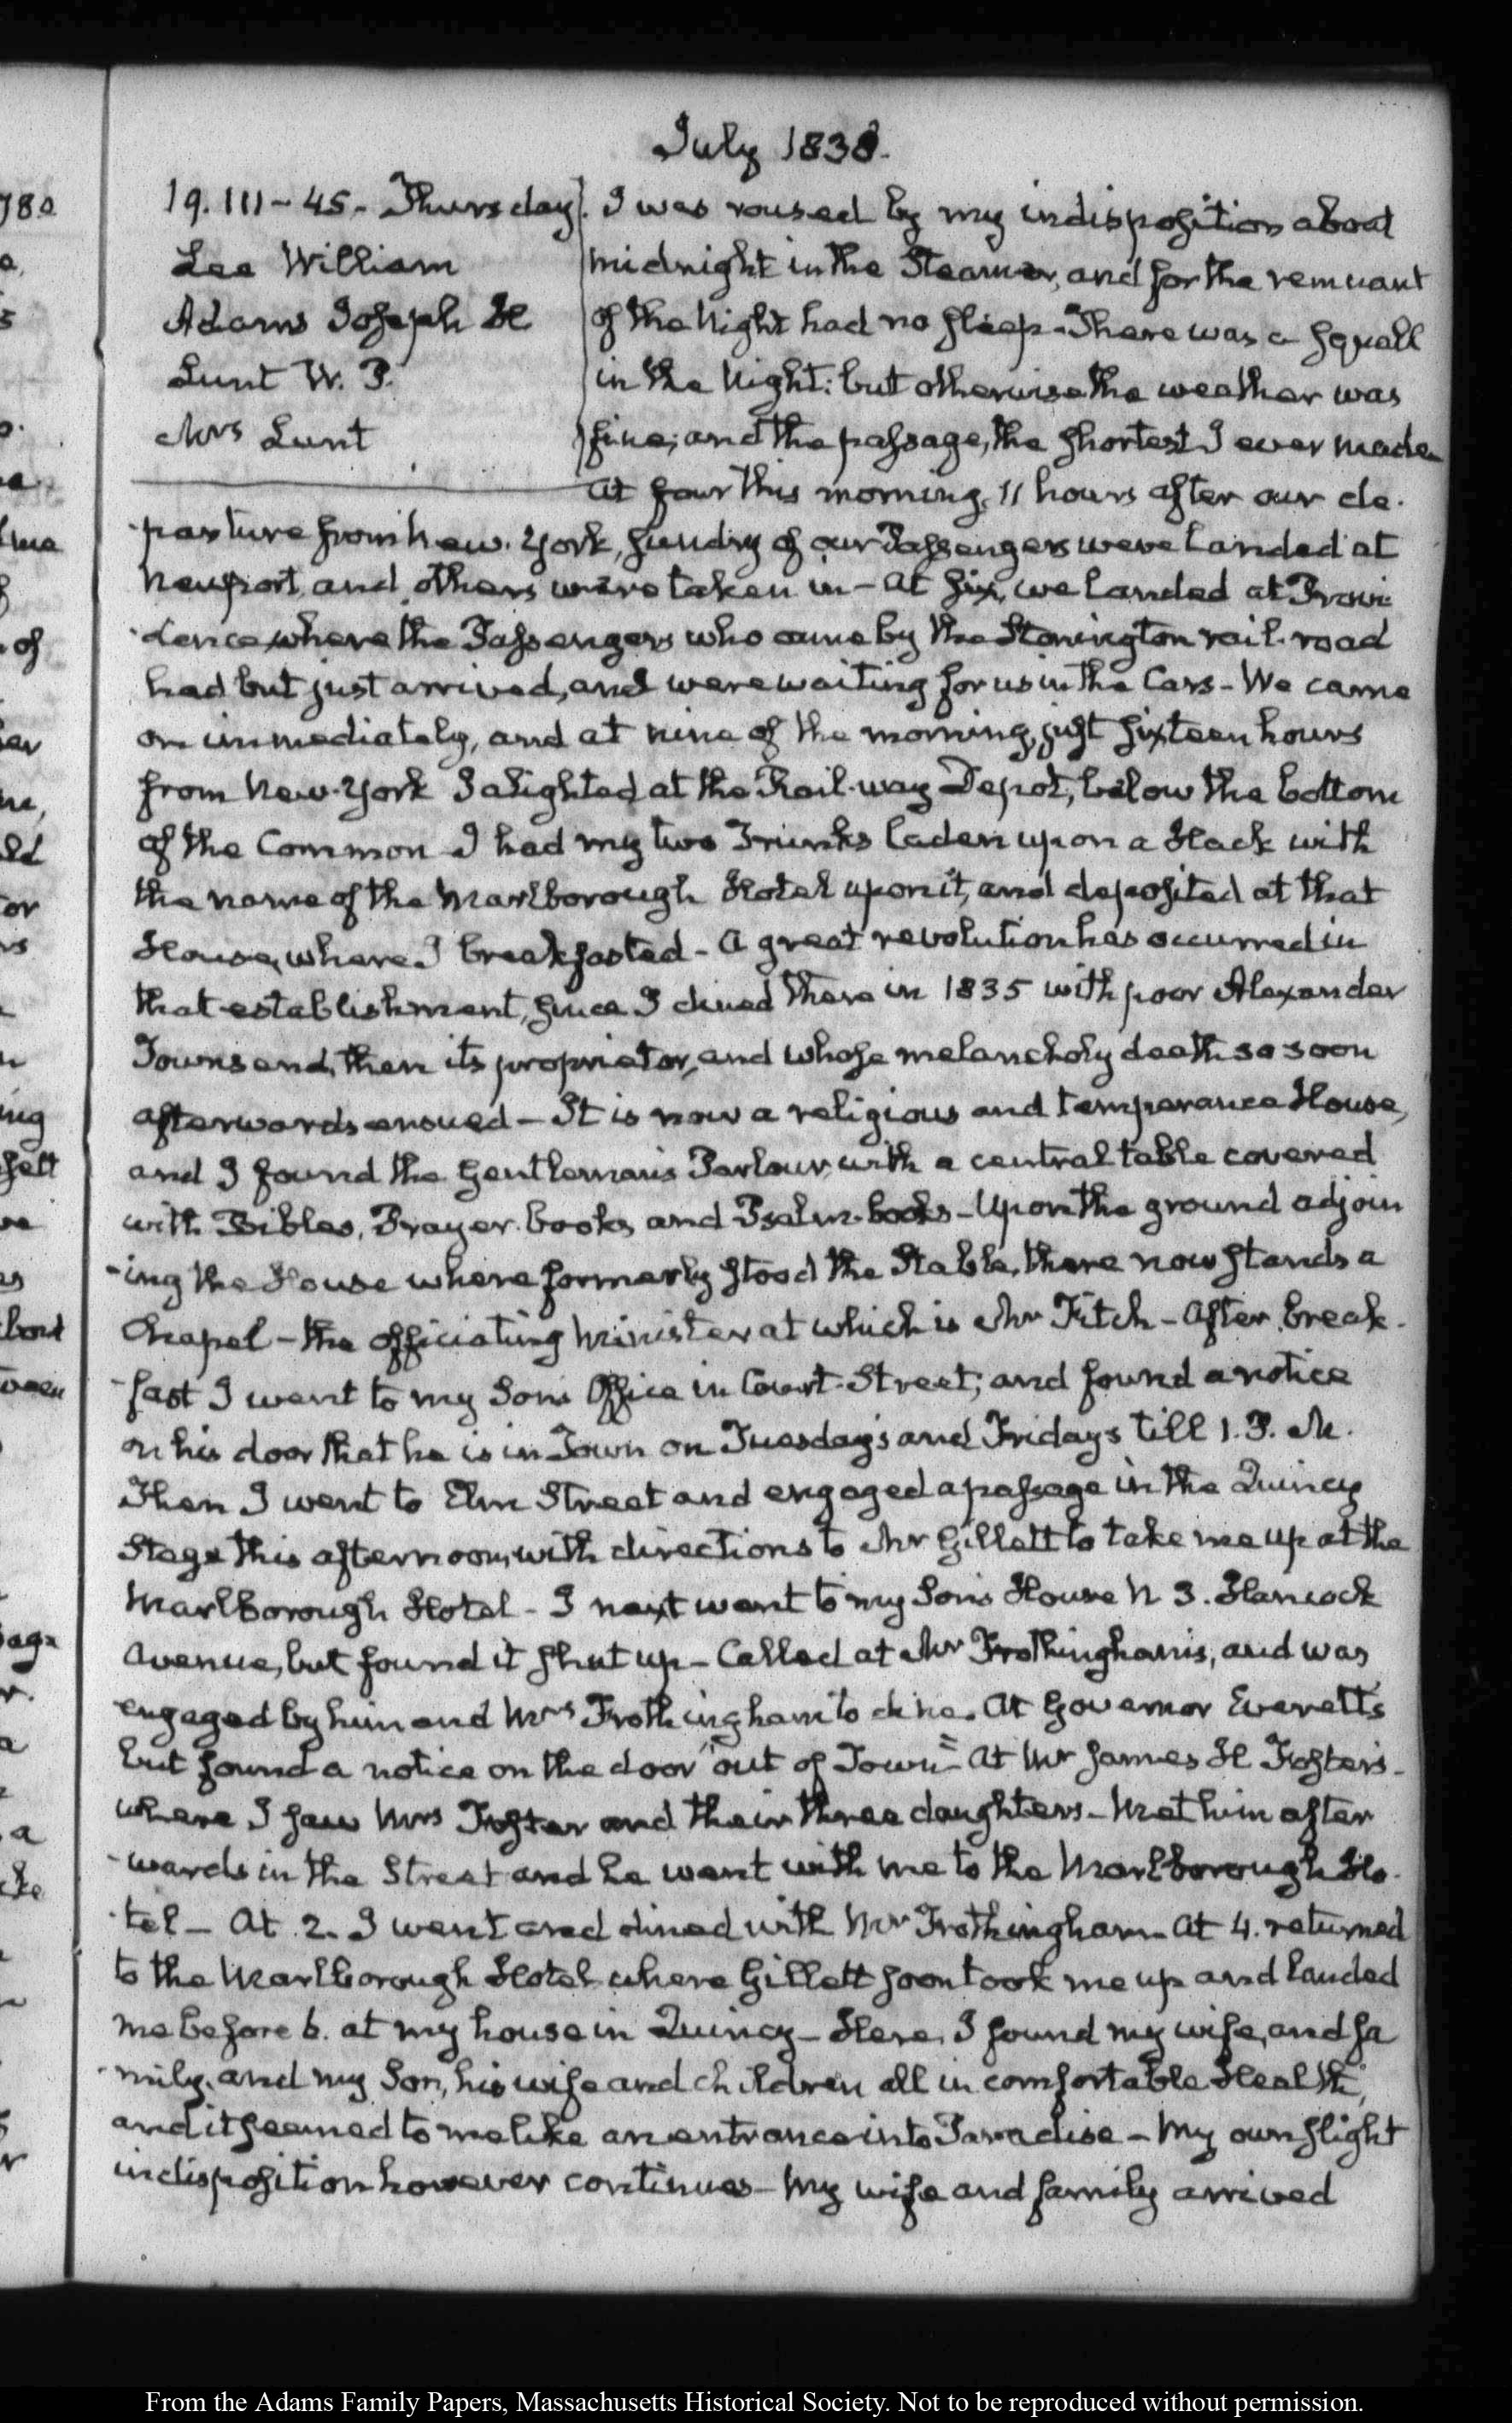 July 1838.
19. III - 45. Thursday.
Lee William
Adams Joseph H
Lunt W. P.
Mrs Lunt
I was roused by my indisposition about
midnight in the Steamer, and for the remnant
of the Night had no sleep - There was a squall
in the Night: but otherwise the weather was
fine; and the passage, the shortest I ever made
At four this morning, 11 hours after our de-
-parture from New-York, sundry of our Passengers were landed at
Newport, and others were taken in - At six, we landed at Provi
-dence where the Passengers who came by the Stonington rail-road
had but just arrived, and were waiting for us in the Cars - We came
on immediately, and at nine of the morning, just sixteen hours
from New-York I alighted at the Rail-way Depot, below the bottom
of the Common - I had my two Trunks laden upon a Hack with
the name of the Marlborough Hotel upon it, and deposited at that
House, where I breakfasted - A great revolution has occurred in
that establishment, since I dined there in 1835 with poor Alexander
Townsend, then its proprietor, and whose melancholy death so soon
afterwards ensued - It is now a religious and temperance House,
and I found the Gentleman's Parlour, with a central table covered
with Bibles, Prayer-books, and Psalm-books - Upon the ground adjoin
-ing the House where formerly stood the Stable, there now stands a
Chapel - the officiating Minister at which is Mr Fitch - After break-
-fast I went to my Son's Office in Court-Street; and found a notice
on his door that he is in Town on Tuesdays and Fridays till 1. P. M.
Then I went to Elm Street and engaged a passage in the Quincy
Stage this afternoon, with directions to Mr Gillett to take me up at the
Marlborough Hotel - I next went to my Son's House N 3. Hancock
Avenue, but found it shut up - Called at Mr Frothingham's, and was
engaged by him and Mrs Frothingham to dine. At Governor Everett's
but found a notice on the door "out of Town" - At Mr James H Foster's -
where I saw Mrs Foster and their three daughters - Met him after
-wards in the Street and he went with me to the Marlborough Ho-
-tel - At 2. I went and dined with Mr Frothingham - At 4. returned
to the Marlborough Hotel where Gillett soon took me up and landed
me before 6. at my house in Quincy - Here, I found my wife, and fa
-mily, and my Son, his wife and children all in comfortable Health;
and it seemed to me like an entrance into Paradise - My own slight
indisposition however continues - My wife and family arrived
From the Adams Family Papers, Massachusetts Historical Society. Not to be reproduced without permission.